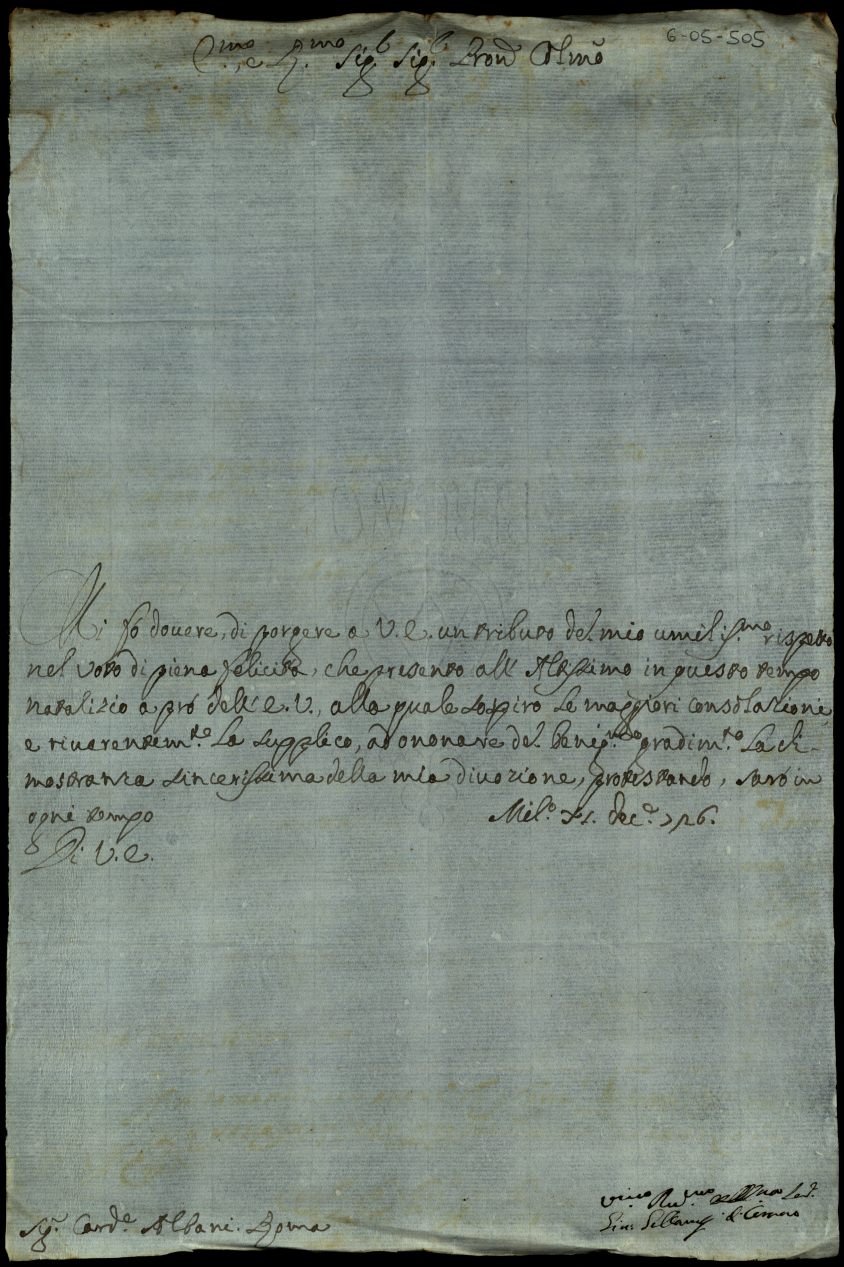 6-05-505
E.mo, e R.mo Sig.r Sig.r Pron Colmo
Mi fo douere, di porgere a V. E. un tributo del mio umilis.mo rispetto
nel voto di piena felicità, che presento all' Altissimo in questo tempo
natalizio a prò dell' E. V., alla quale sospiro le maggiori consolazioni,
e riuerentem.te La supplico, ad onorare del benig.mo gradim.to La di-
mostranza sincerissima della mia diuozione, protestando, sarò in
ogni tempo
Mil.o XI. dec.e 726.
Di V. E.
Sig.r Card.e Albani. Roma